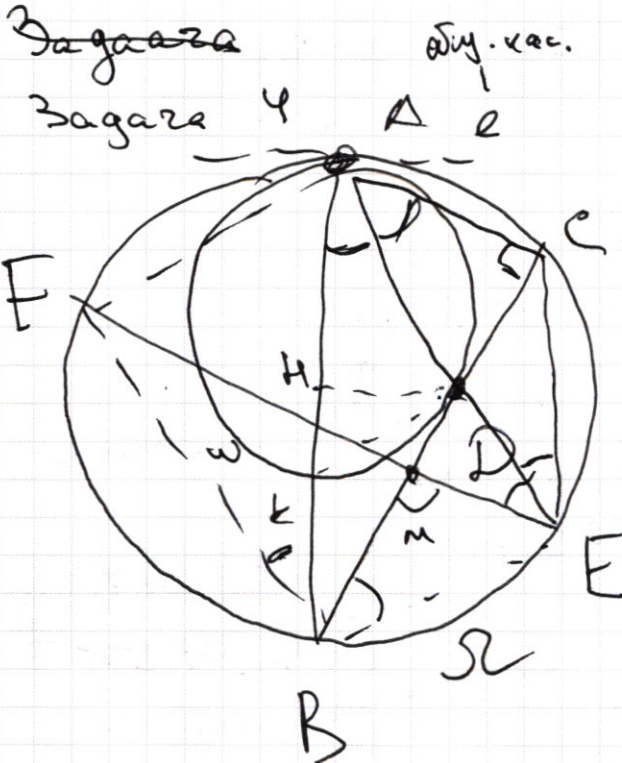 Задача
общ. кас.
Задача 4 A l
C
F
H
D
ω
K
M
E
Ω
B